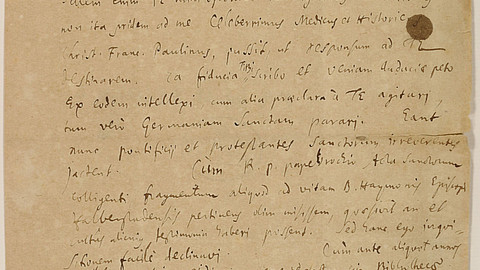 non ita pridem ad me Celeberrimus Medicus et Historic
Christ. Franc. Paulinus, jussit ut responsum ad TE
destinarem. ea fiducia Tibi scribo et veniam audaciæ peto
Ex eodem intellexi cum alia præclara à TE agitari,
tum verò Germaniam Sanctam parari. Eant
nunc pontificij et protestantes Sanctorum irreverentes
jactent. Cùm R. P. Papebrochio, Acta Sanctorum
colligenti fragmentum aliquod ad vitam B. Haymonis Episcopi
Halberstadensis pertinens olim misissem, quæsivit an et
cultus alicujus testimonia haberi possent. Sed hanc ego inqui-
sitionem facilè declinavi. Cum ante aliquot annos
Bibliotheca